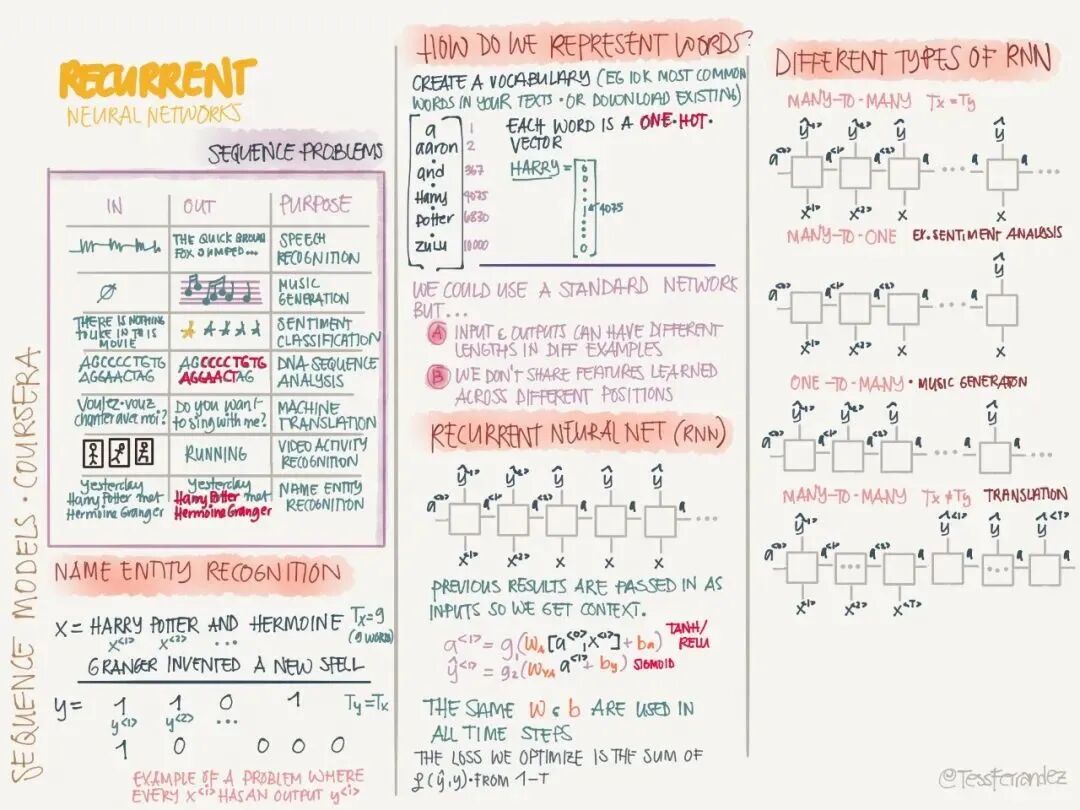 RECURRENT
NEURAL NETWORKS
SEQUENCE PROBLEMS
IN OUT PURPOSE
THE QUICK BROWN
FOX JUMPED...
SPEECH
RECOGNITION
∅
MUSIC
GENERATION
THERE IS NOTHING
TO LIKE IN THIS
MOVIE
SENTIMENT
CLASSIFICATION
AGCCCCTGTG
AGGAACTAG
AGCCCCTGTG
AGGAACTAG
DNA SEQUENCE
ANALYSIS
Voulez-vouz
chanter avec moi?
Do you want
to sing with me?
MACHINE
TRANSLATION
RUNNING
VIDEO ACTIVITY
RECOGNITION
Yesterday
Harry Potter met
Hermoine Granger
Yesterday
Harry Potter met
Hermoine Granger
NAME ENTITY
RECOGNITION
SEQUENCE MODELS · COURSERA
NAME ENTITY RECOGNITION
X = HARRY POTTER AND HERMOINE Tx=9
x<1> x<2> ... (9 WORDS)
GRANGER INVENTED A NEW SPELL
y= 1 1 0 1 Ty=Tx
y<1> y<2> ...
1 0 0 0 0
EXAMPLE OF A PROBLEM WHERE
EVERY x<i> HAS AN OUTPUT y<i>
HOW DO WE REPRESENT WORDS?
CREATE A VOCABULARY (EG 10K MOST COMMON
WORDS IN YOUR TEXTS · OR DOWNLOAD EXISTING)
a 1
aaron 2
and 367
Harry 4075
Potter 6830
zulu 10000
EACH WORD IS A ONE·HOT·
VECTOR
HARRY =
0
0
1 4075
0
WE COULD USE A STANDARD NETWORK
BUT...
A INPUT & OUTPUTS CAN HAVE DIFFERENT
LENGTHS IN DIFF EXAMPLES
B WE DON'T SHARE FEATURES LEARNED
ACROSS DIFFERENT POSITIONS
RECURRENT NEURAL NET (RNN)
ŷ<1> ŷ<2> ŷ ŷ ŷ
a<0> a<1> a<2> a a a ...
x<1> x<2> x x x
PREVIOUS RESULTS ARE PASSED IN AS
INPUTS SO WE GET CONTEXT.
a<1> = g1(Wa[a<0>,x<1>] + ba) TANH/
RELU
ŷ<1> = g2(Wya a<1> + by) SIGMOID
THE SAME W & b ARE USED IN
ALL TIME STEPS
THE LOSS WE OPTIMIZE IS THE SUM OF
ℒ(ŷ,y) · FROM 1-T
DIFFERENT TYPES OF RNN
MANY-TO-MANY Tx = Ty
ŷ<1> ŷ<2> ŷ ŷ
a<0> a<1> a<2> a ... a ...
x<1> x<2> x x
MANY-TO-ONE EX. SENTIMENT ANALYSIS
ŷ
a<0> a<1> a<2> a ... a
x<1> x<2> x x
ONE-TO-MANY · MUSIC GENERATION
ŷ<1> ŷ<2> ŷ ŷ
a<0> a<1> a<2> a ... a
MANY-TO-MANY Tx ≠ Ty TRANSLATION
ŷ<1> ŷ<1> ŷ ŷ<T>
a<0> a<1> ... a<2> a a ... a
x<1> x<2> x<T>
@TessFerrandez